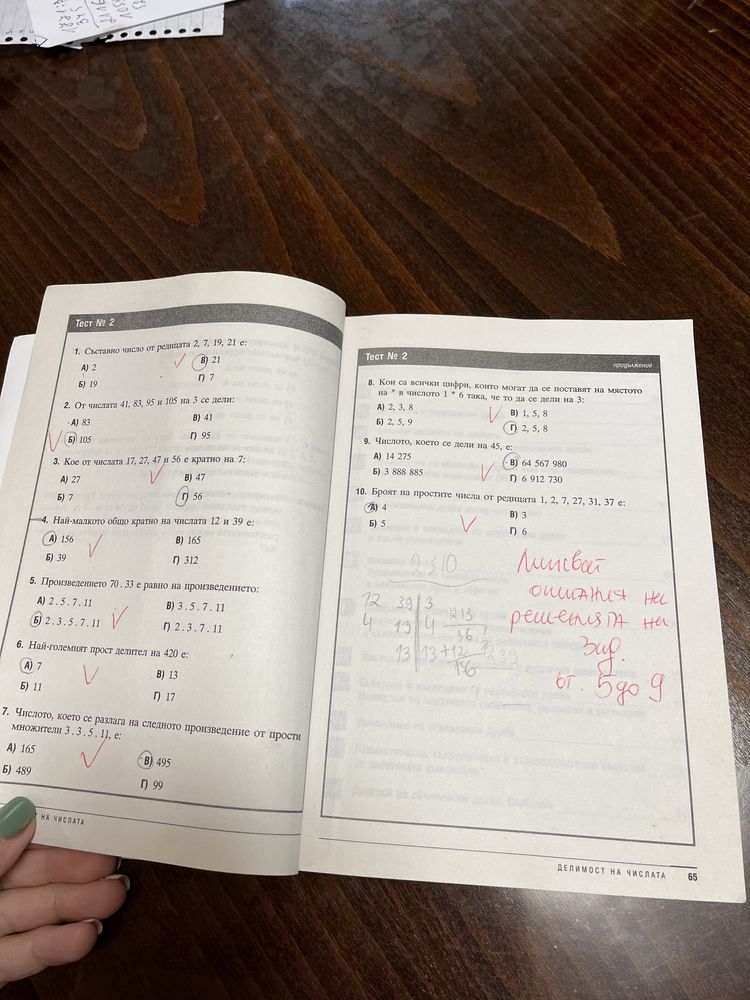 Тест № 2
1. Съставно число от редицата 2, 7, 19, 21 е:
А) 2
В) 21
Б) 19
Г) 7
2. От числата 41, 83, 95 и 105 на 3 се дели:
А) 83
В) 41
Б) 105
Г) 95
3. Кое от числата 17, 27, 47 и 56 е кратно на 7:
А) 27
В) 47
Б) 7
Г) 56
4. Най-малкото общо кратно на числата 12 и 39 е:
А) 156
В) 165
Б) 39
Г) 312
5. Произведението 70 . 33 е равно на произведението:
А) 2 . 5 . 7 . 11
В) 3 . 5 . 7 . 11
Б) 2 . 3 . 5 . 7 . 11
Г) 2 . 3 . 7 . 11
6. Най-големият прост делител на 420 е:
А) 7
В) 13
Б) 11
Г) 17
7. Числото, което се разлага на следното произведение от прости
множители 3 . 3 . 5 . 11, е:
А) 165
В) 495
Б) 489
Г) 99
НА ЧИСЛАТА
Тест № 2
продължение
8. Кои са всички цифри, които могат да се поставят на мястото
на * в числото 1 * 6 така, че то да се дели на 3:
А) 2, 3, 8
В) 1, 5, 8
Б) 2, 5, 9
Г) 2, 5, 8
9. Числото, което се дели на 45, е:
А) 14 275
В) 64 567 980
Б) 3 888 885
Г) 6 912 730
10. Броят на простите числа от редицата 1, 2, 7, 27, 31, 37 е:
А) 4
В) 3
Б) 5
Г) 6
12 39 3
4 13 4
13 13
36
+12
156
Липсват
описания на
решенията на
зад.
от 5 до 9
ДЕЛИМОСТ НА ЧИСЛАТА 65